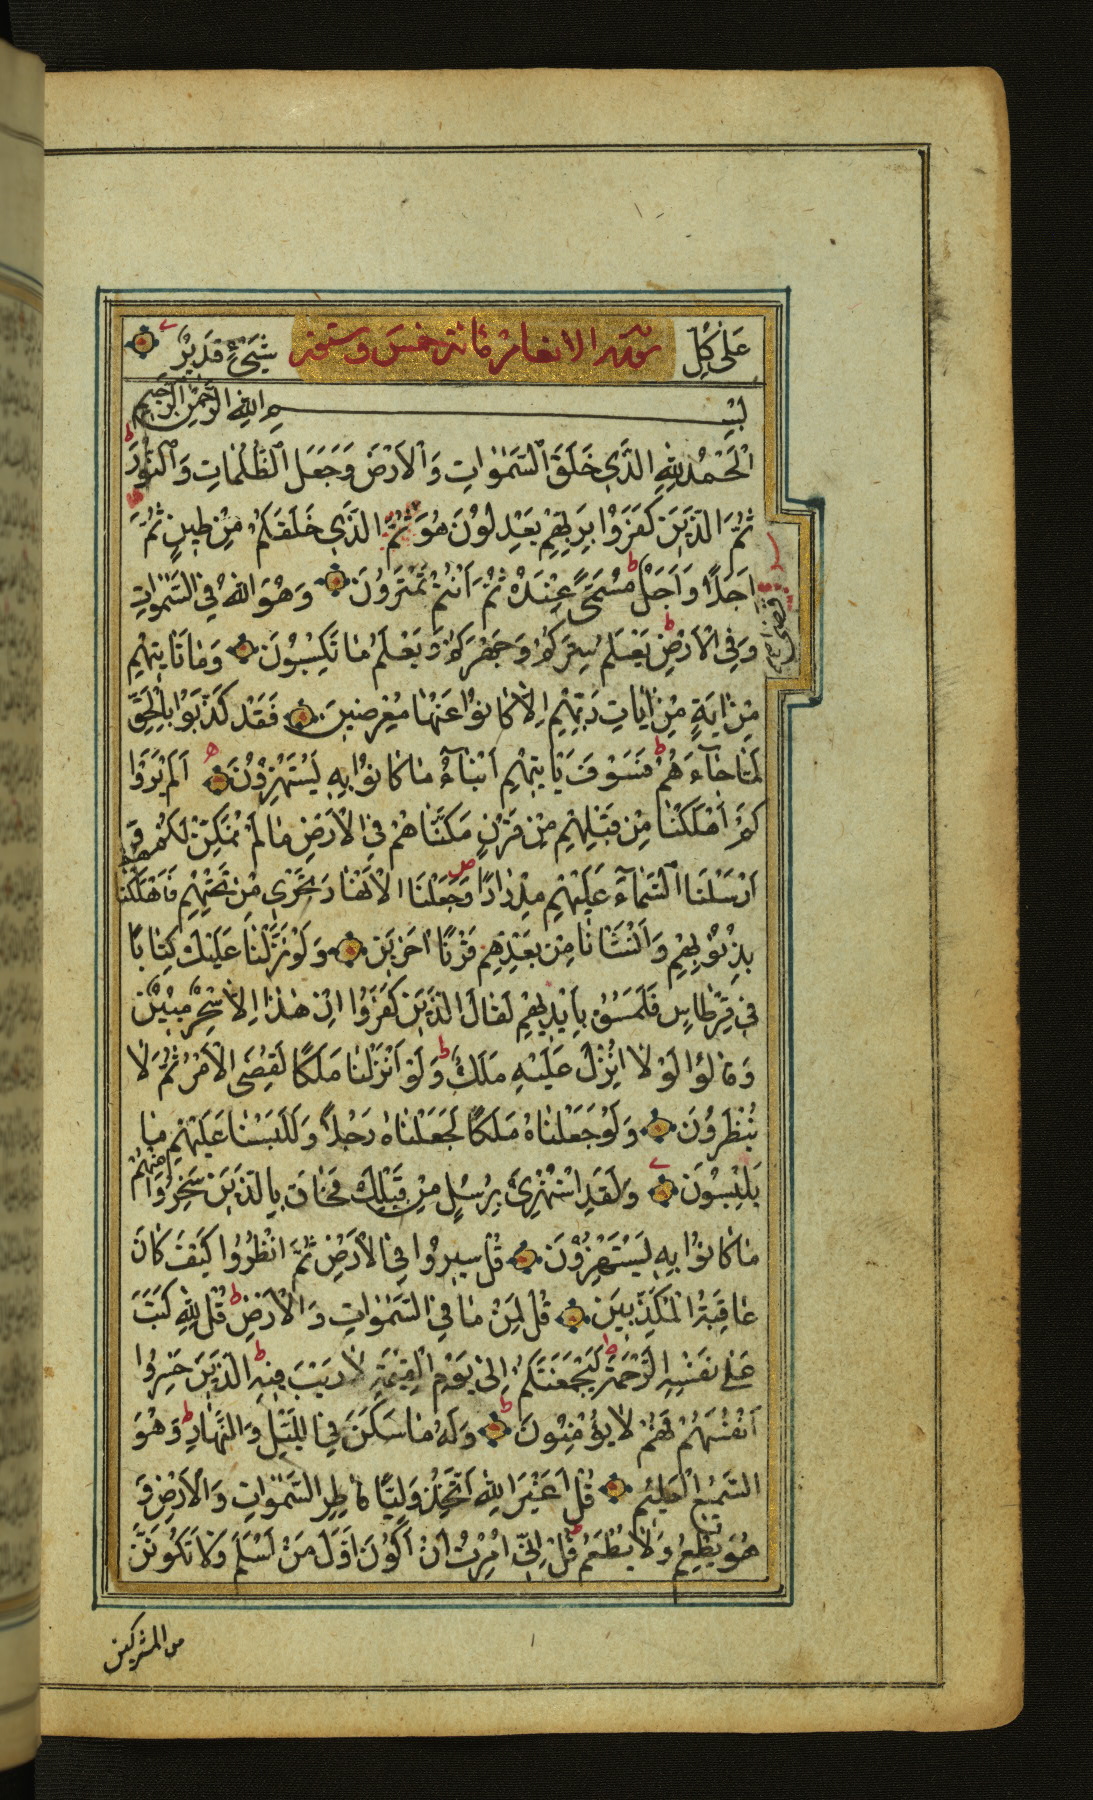 عَلىٰ كُلِّ سورة الانعام مائة وخمس وستون شَيْءٍ قَديرٌ
بِسْمِ اللهِ الرَّحْمٰنِ الرَّحيمِ
اَلْحَمْدُ لِلّٰهِ الَّذي خَلَقَ السَّمٰوَاتِ وَالْاَرْضَ وَجَعَلَ الظُّلُمَاتِ وَالنُّورَ ط
ثُمَّ الَّذينَ كَفَرُوا بِرَبِّهِمْ يَعْدِلُونَ هُوَ ثُمَّ الَّذي خَلَقَكُمْ مِنْ طينٍ ثُمَّ
قضى
اَجَلًا وَاَجَلٌ مُسَمًّى عِنْدَهُ ثُمَّ اَنْتُمْ تَمْتَرُونَ وَهُوَ اللهُ فِي السَّمٰوَاتِ
وَفِي الْاَرْضِ يَعْلَمُ سِرَّكُمْ وَجَهْرَكُمْ وَيَعْلَمُ مَا تَكْسِبُونَ وَمَا تَاْتيهِمْ
مِنْ اٰيَةٍ مِنْ اٰيَاتِ رَبِّهِمْ اِلَّا كَانُوا عَنْهَا مُعْرِضينَ فَقَدْ كَذَّبُوا بِالْحَقِّ
لَمَّا جَاءَهُمْ فَسَوْفَ يَاْتيهِمْ اَنْبَاءُ مَا كَانُوا بِهِ يَسْتَهْزِؤُنَ اَلَمْ يَرَوْا
كَمْ اَهْلَكْنَا مِنْ قَبْلِهِمْ مِنْ قَرْنٍ مَكَّنَّاهُمْ فِي الْاَرْضِ مَا لَمْ نُمَكِّنْ لَكُمْ وَ
اَرْسَلْنَا السَّمَاءَ عَلَيْهِمْ مِدْرَارًا وَجَعَلْنَا الْاَنْهَارَ تَجْري مِنْ تَحْتِهِمْ فَاَهْلَكْنَاهُمْ
بِذُنُوبِهِمْ وَاَنْشَاْنَا مِنْ بَعْدِهِمْ قَرْنًا اٰخَرينَ وَلَوْ نَزَّلْنَا عَلَيْكَ كِتَابًا
في قِرْطَاسٍ فَلَمَسُوهُ بِاَيْديهِمْ لَقَالَ الَّذينَ كَفَرُوا اِنْ هٰذَا اِلَّا سِحْرٌ مُبينٌ
وَقَالُوا لَوْلَا اُنْزِلَ عَلَيْهِ مَلَكٌ وَلَوْ اَنْزَلْنَا مَلَكًا لَقُضِيَ الْاَمْرُ ثُمَّ لَا
يُنْظَرُونَ وَلَوْ جَعَلْنَاهُ مَلَكًا لَجَعَلْنَاهُ رَجُلًا وَلَلَبَسْنَا عَلَيْهِمْ مَا
يَلْبِسُونَ وَلَقَدِ اسْتُهْزِئَ بِرُسُلٍ مِنْ قَبْلِكَ فَحَاقَ بِالَّذينَ سَخِرُوا مِنْهُمْ
مَا كَانُوا بِهِ يَسْتَهْزِؤُنَ قُلْ سيرُوا فِي الْاَرْضِ ثُمَّ انْظُرُوا كَيْفَ كَانَ
عَاقِبَةُ الْمُكَذِّبينَ قُلْ لِمَنْ مَا فِي السَّمٰوَاتِ وَالْاَرْضِ قُلْ لِلّٰهِ كَتَبَ
عَلٰى نَفْسِهِ الرَّحْمَةَ لَيَجْمَعَنَّكُمْ اِلٰى يَوْمِ الْقِيٰمَةِ لَا رَيْبَ فيهِ الَّذينَ خَسِرُوا
اَنْفُسَهُمْ فَهُمْ لَا يُؤْمِنُونَ وَلَهُ مَا سَكَنَ فِي اللَّيْلِ وَالنَّهَارِ وَهُوَ
السَّميعُ الْعَليمُ قُلْ اَغَيْرَ اللهِ اَتَّخِذُ وَلِيًّا فَاطِرِ السَّمٰوَاتِ وَالْاَرْضِ وَ
هُوَ يُطْعِمُ وَلَا يُطْعَمُ قُلْ اِنّي اُمِرْتُ اَنْ اَكُونَ اَوَّلَ مَنْ اَسْلَمَ وَلَا تَكُونَنَّ
من المشركين